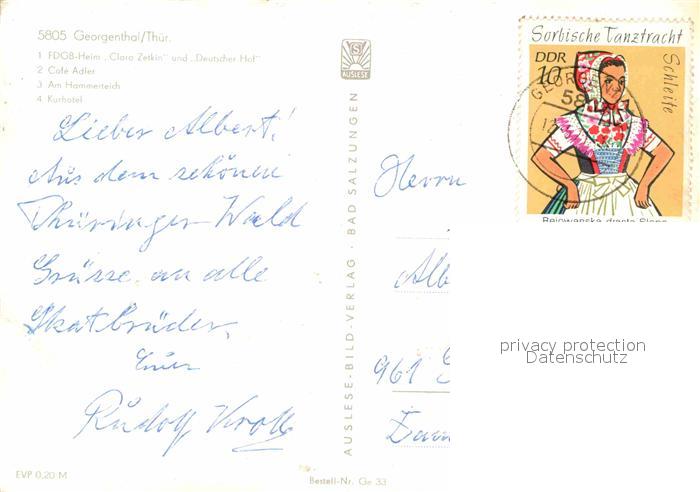 5805 Georgenthal/Thür.
1 FDGB-Heim „Clara Zetkin" und „Deutscher Hof"
2 Café Adler
3 Am Hammerteich
4 Kurhotel
Lieber Albert!
Aus dem schönen
Thüringer Wald
Grüsse an alle
Skatbrüder.
Euer
Rudolf
EVP 0,20 M
AUSLESE
AUSLESE-BILD-VERLAG · BAD SALZUNGEN
Bestell-Nr. Ge 33
Sorbische Tanztracht
DDR
10
Schleife
GEORG
58
12
Rejowanska drasta Slepo
Herrn
Alb
961
privacy protection
Datenschutz